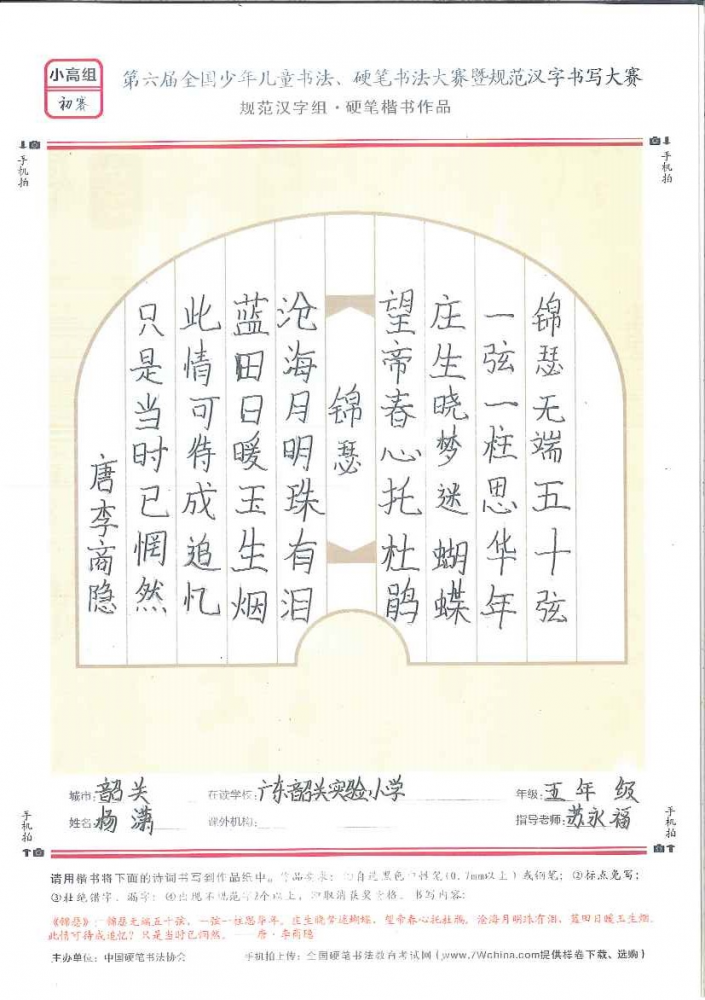 小高组
初赛
第六届全国少年儿童书法、硬笔书法大赛暨规范汉字书写大赛
规范汉字组·硬笔楷书作品
手机拍
手机拍
锦瑟无端五十弦
一弦一柱思华年
庄生晓梦迷蝴蝶
望帝春心托杜鹃
锦瑟
沧海月明珠有泪
蓝田日暖玉生烟
此情可待成追忆
只是当时已惘然
唐李商隐
城市:韶关 在读学校:广东韶关实验小学 年级:五年级
姓名:杨潇 课外机构: 指导老师:苏永福
手机拍
手机拍
请用楷书将下面的诗词书写到作品纸中。作品要求:①自选黑色中性笔(0.7mm以上)或钢笔;②标点免写;
③杜绝错字、漏字;④出现不规范字2个以上,即取消获奖资格。书写内容:
《锦瑟》:锦瑟无端五十弦,一弦一柱思华年。庄生晓梦迷蝴蝶,望帝春心托杜鹃。沧海月明珠有泪,蓝田日暖玉生烟。
此情可待成追忆?只是当时已惘然。——唐·李商隐
主办单位:中国硬笔书法协会 手机拍上传:全国硬笔书法教育考试网(www.7Wchina.com提供样卷下载、选购)